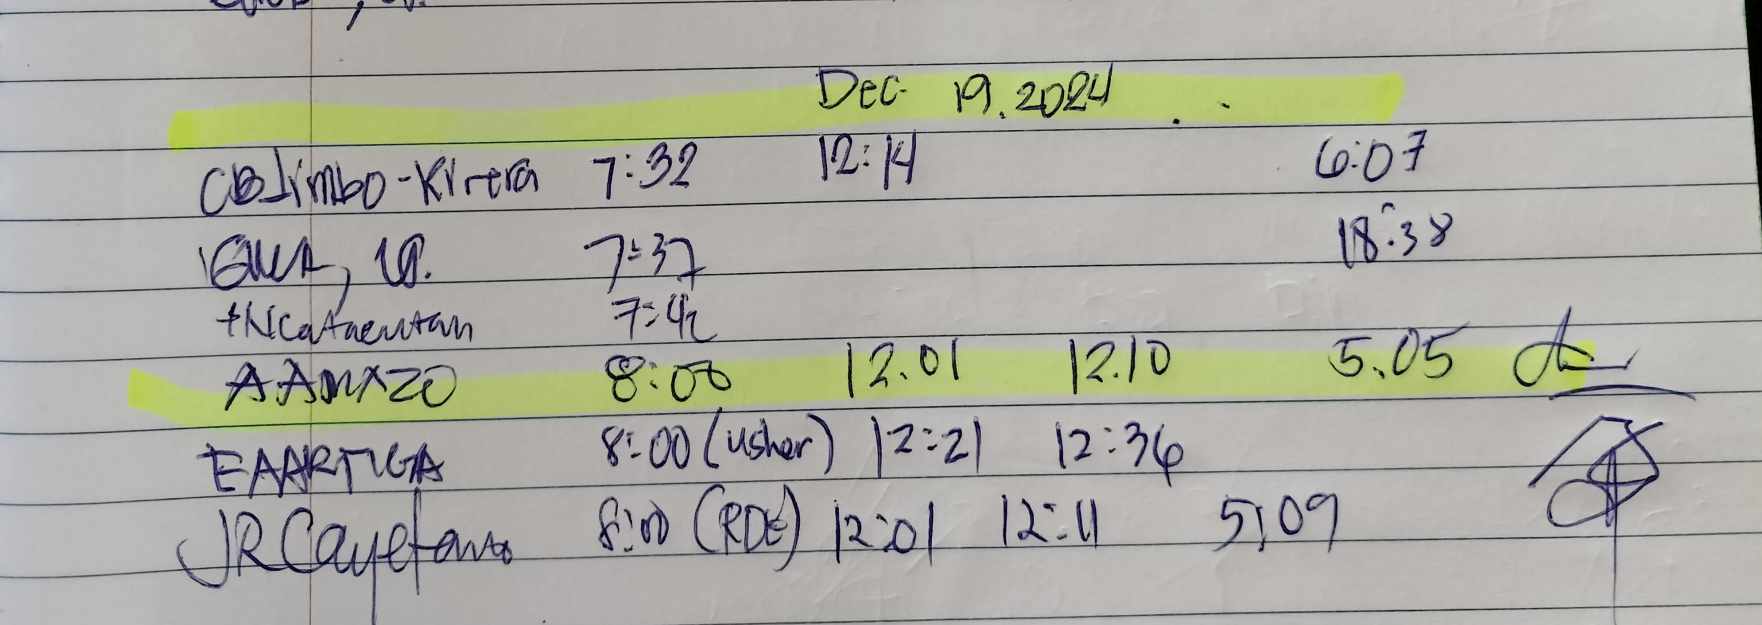 Dec. 19. 2024
7:32 12:14 6:07
7:37 18:38
7:42
AAMAZO 8:00 12.01 12.10 5.05
EAARTIGA 8:00 (usher) 12:21 12:36
JR Cayetano 8:00 (RDE) 12:01 12:11 5:09